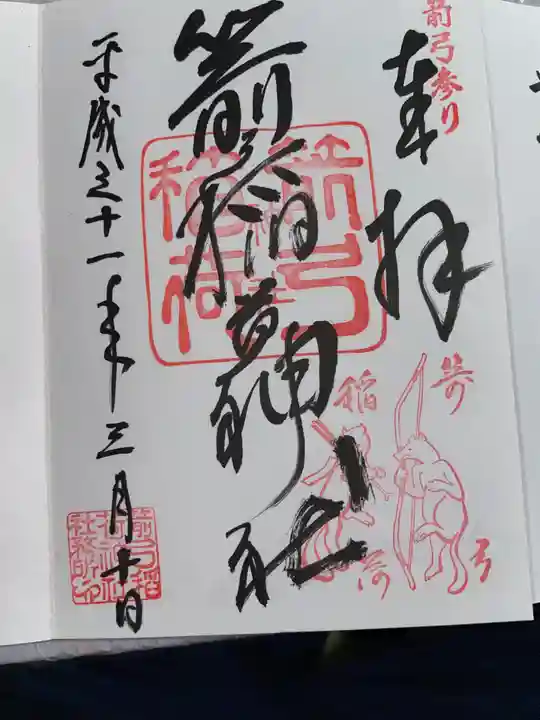 箭弓参り
奉拝
箭弓稲荷神社
箭弓
稲荷
箭弓
稲荷
平成三十一年三月十日
箭弓稲
荷神社
社務所印